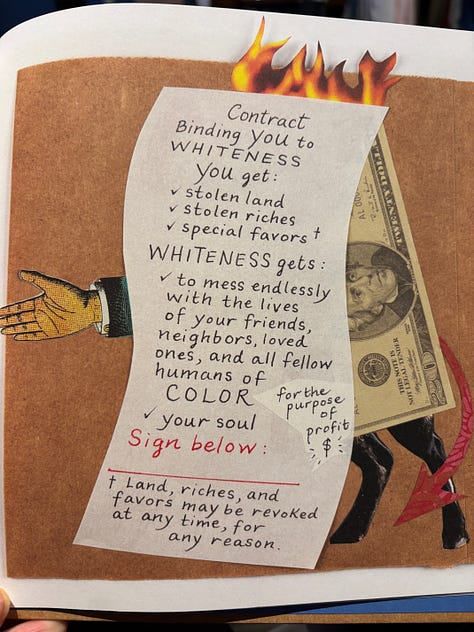 Contract
Binding YOU to
WHITENESS
You get:
✓ stolen land
✓ stolen riches
✓ special favors †
WHITENESS gets:
✓ to mess endlessly
with the lives
of your friends,
neighbors, loved
ones, and all fellow
humans of
COLOR
✓ your soul
for the
purpose
of
profit
$
Sign below:
† Land, riches, and
favors may be revoked
at any time, for
any reason.
THIS NOTE IS
NOT LEGAL TENDER